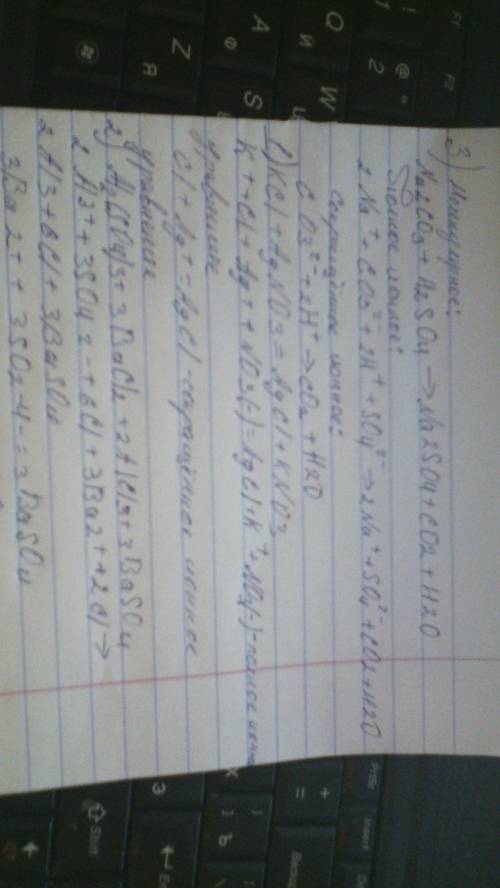 3) Молекулярное:
Na2CO3 + H2SO4 → Na2SO4 + CO2 + H2O
Полное ионное:
2 Na⁺ + CO3²⁻ + 2H⁺ + SO4²⁻ → 2 Na⁺ + SO4²⁻ + CO2 + H2O
Сокращённое ионное:
CO3²⁻ + 2H⁺ → CO2 + H2O
1) KCl + AgNO3 = AgCl + KNO3
K + - Cl + Ag + + NO3(-) = AgCl + K⁺ + NO3(-) - полное
уравнение
Cl + Ag + = AgCl - сокращённое ионное
уравнение
2) Al2(SO4)3 + 3 BaCl2 + 2AlCl3 + 3 BaSO4
2 Al3+ + 3SO4 2- + 6Cl + 3Ba2+ + 2Cl →
2 Al3 + 6Cl + 3BaSO4
3Ba2+ + 3SO2-4 - = 3BaSO4
F1
F2
!
1
@
"
2
Q
И
W
Ц
A
Ф
S
Z
Я
PrtSc
Insert
+
=
}
]
Ъ
Х
Э
Enter
Shift